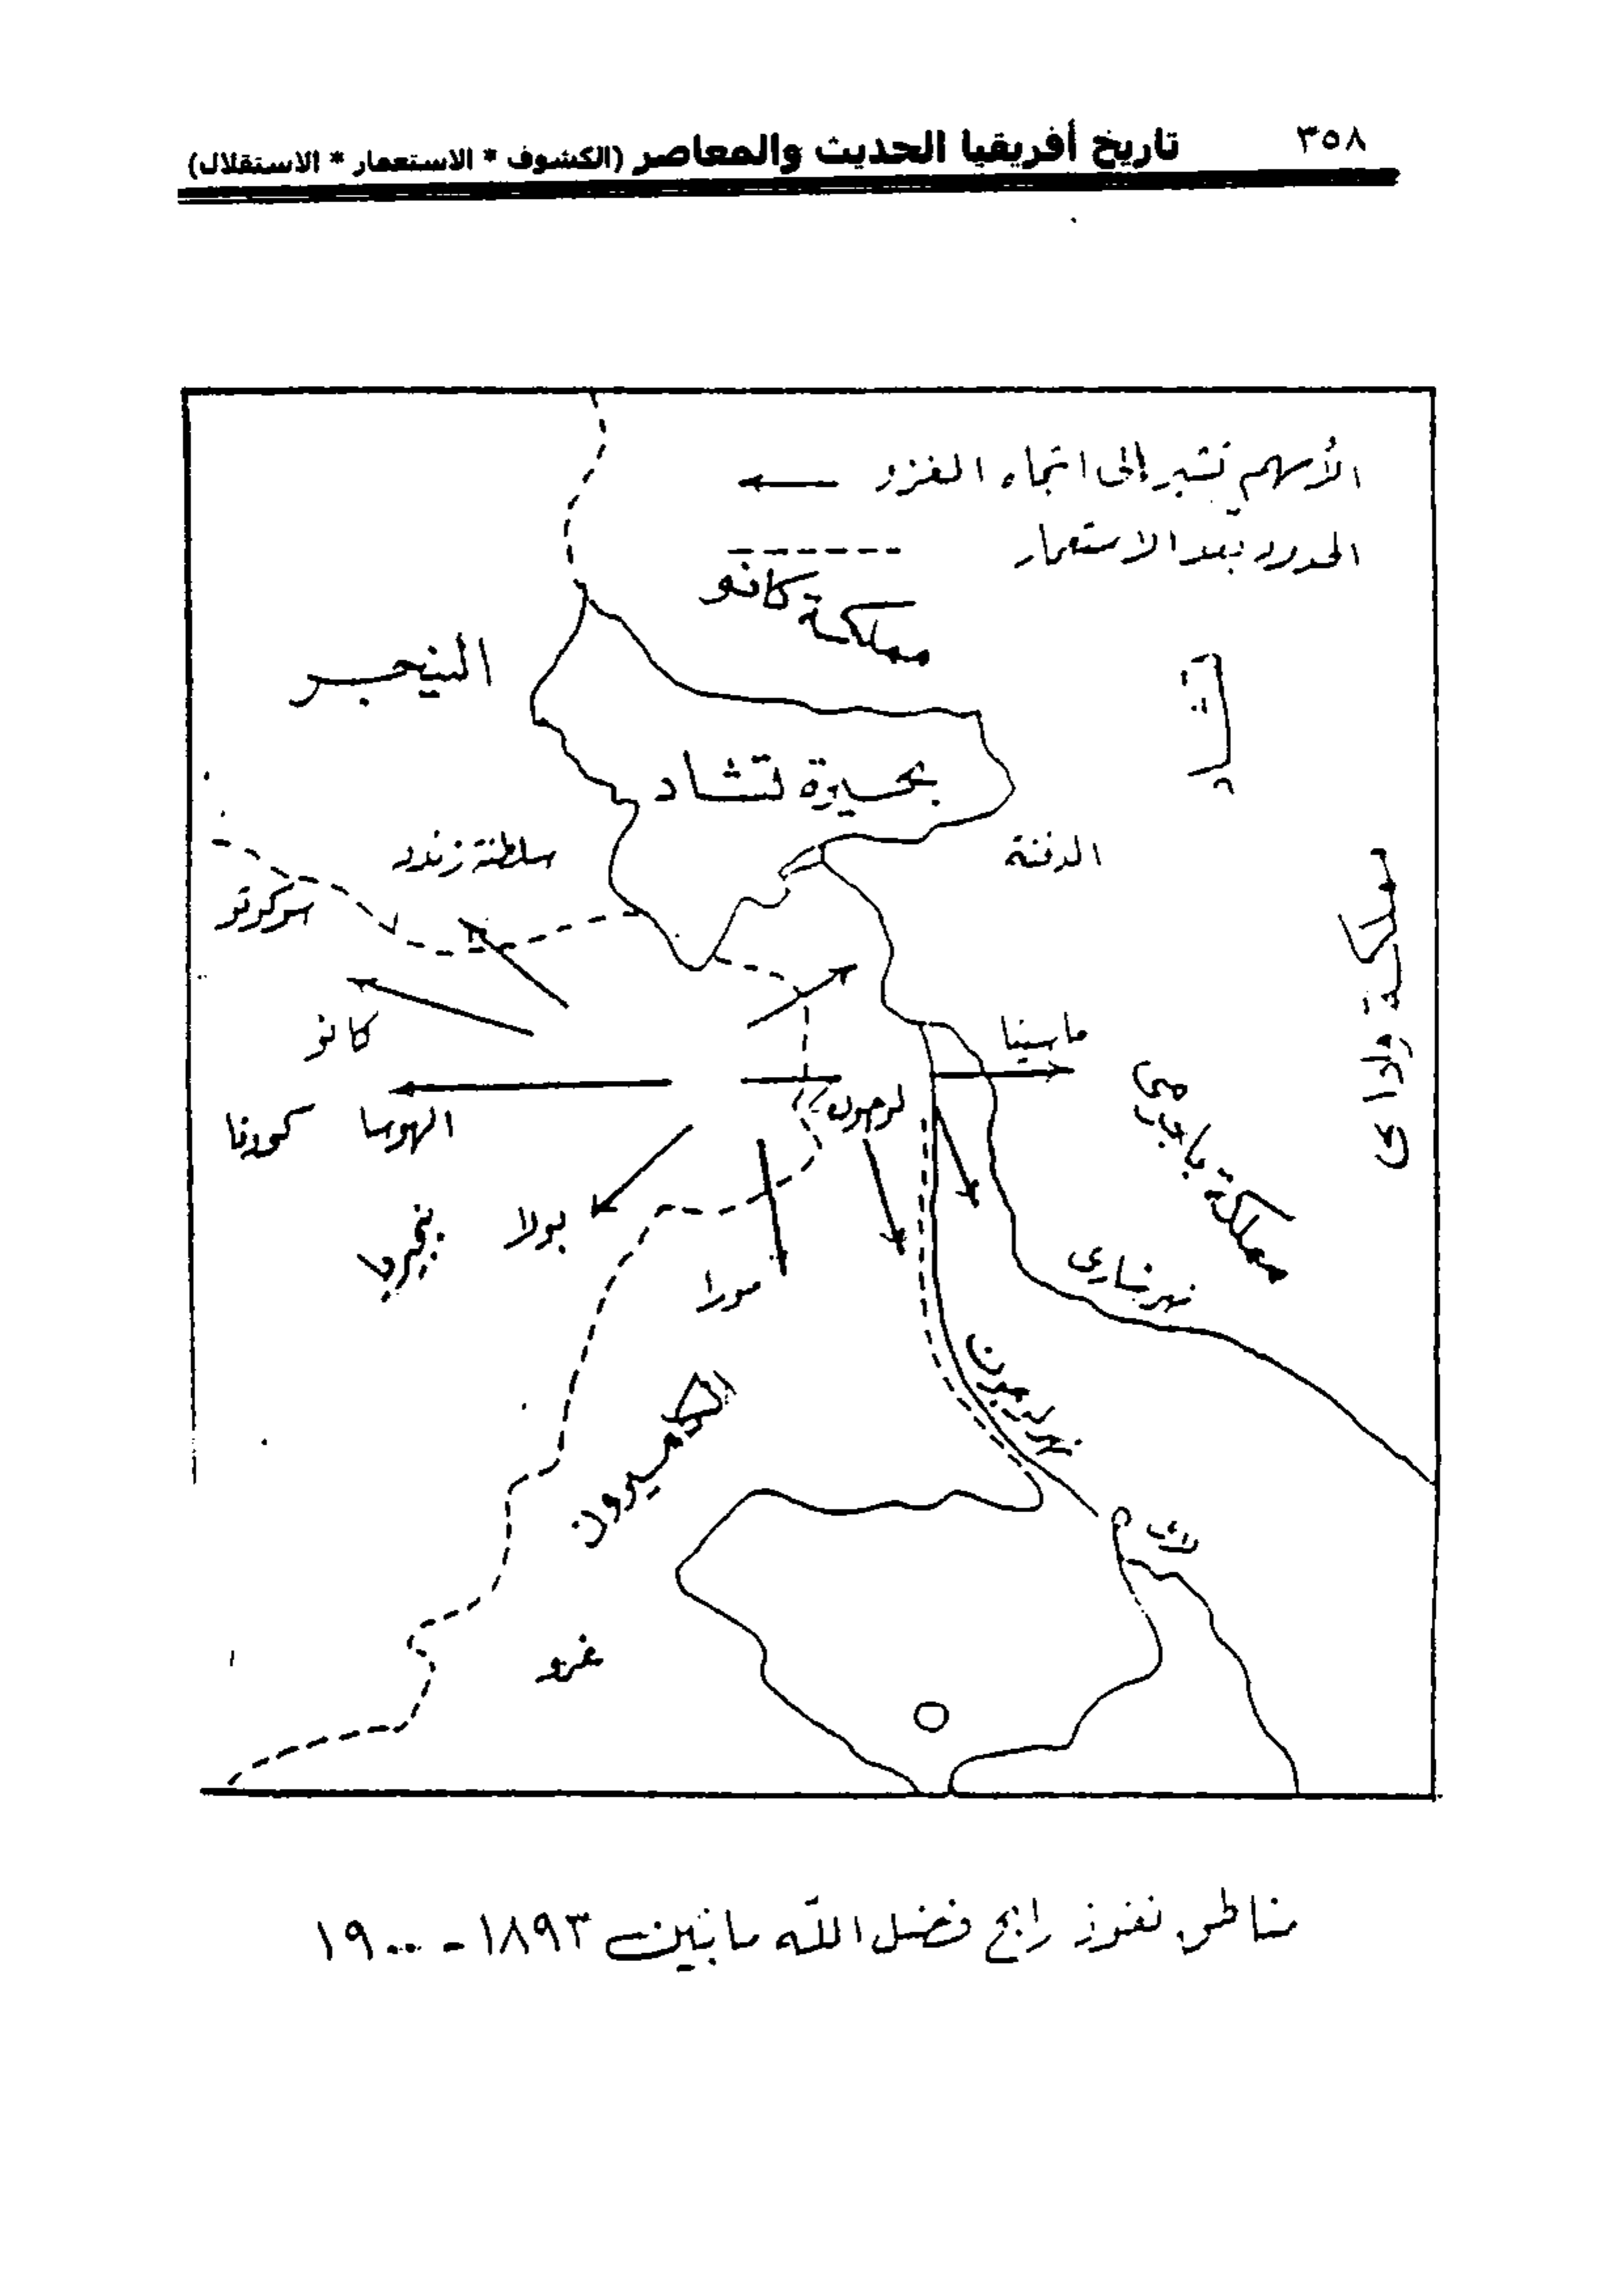 ٣٥٨
تاريخ أفريقيا الحديث والمعاصر (الكشوف * الاستعمار * الاستقلال)
الأسهم تشير إلى اتجاه الغزو
الحدود بعد الاستعمار
مملكة كانو
النيجر
بحيرة تشاد
سلطنة زندر
سوكوتو
مملكة واداي
كانو
ماسينيا
مملكة باجرمي
الهوسا
بولا
مورا
نهر شاري
الكميرون
مناطق نفوذ رابح فضل الله ما بين ١٨٩٣ - ١٩٠٠